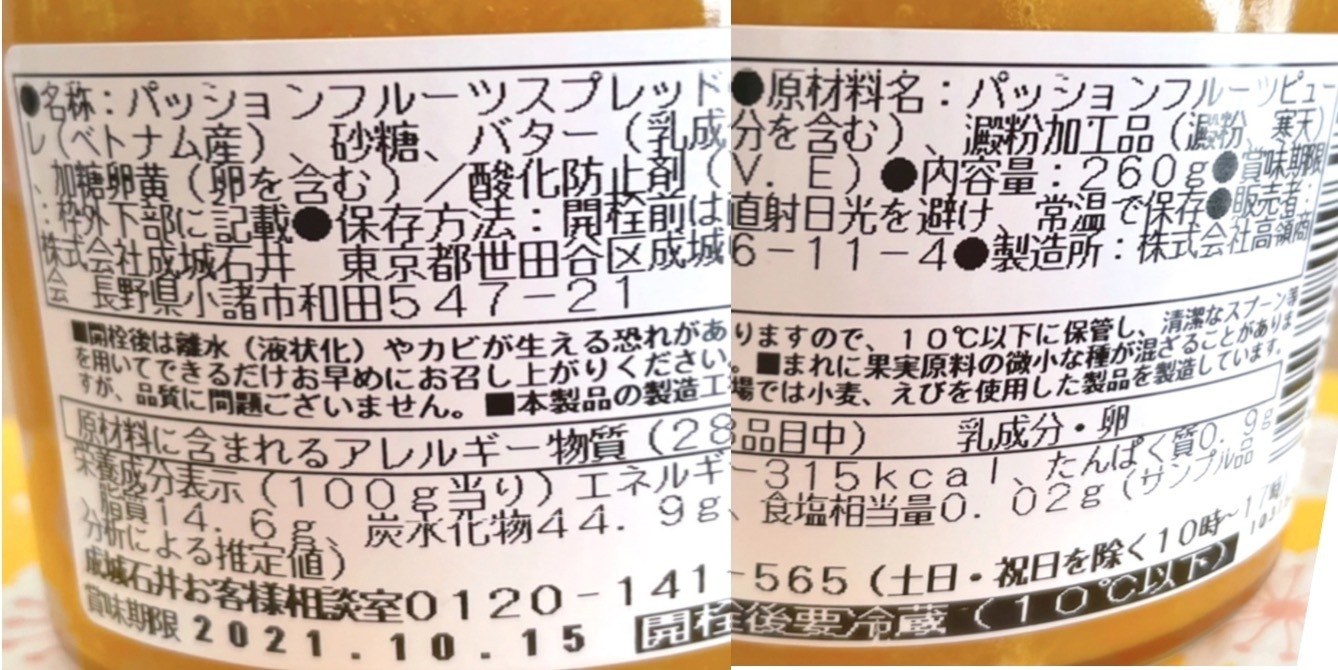 ●名称：パッションフルーツスプレッド●原材料名：パッションフルーツピュー
レ（ベトナム産）、砂糖、バター（乳成分を含む）、澱粉加工品（澱粉、寒天）
、加糖卵黄（卵を含む）／酸化防止剤（V．E）●内容量：260g●賞味期限
：枠外下部に記載●保存方法：開栓前は直射日光を避け、常温で保存●販売者：
株式会社成城石井　東京都世田谷区成城6－11－4●製造所：株式会社高嶺商
会　長野県小諸市和田547－21
■開栓後は離水（液状化）やカビが生える恐れがありますので、10℃以下に保管し、清潔なスプーン等
を用いてできるだけお早めにお召し上がりください。■まれに果実原料の微小な種が混ざることがありま
すが、品質に問題ございません。■本製品の製造工場では小麦、えびを使用した製品を製造しています。
原材料に含まれるアレルギー物質（28品目中）　乳成分・卵
栄養成分表示（100g当り）エネルギー315kcal、たんぱく質0．9g
、脂質14．6g、炭水化物44．9g、食塩相当量0．02g（サンプル品
分析による推定値）
成城石井お客様相談室0120－141－565（土日・祝日を除く10時～17時）
賞味期限 2021.10.15　開栓後要冷蔵（10℃以下）